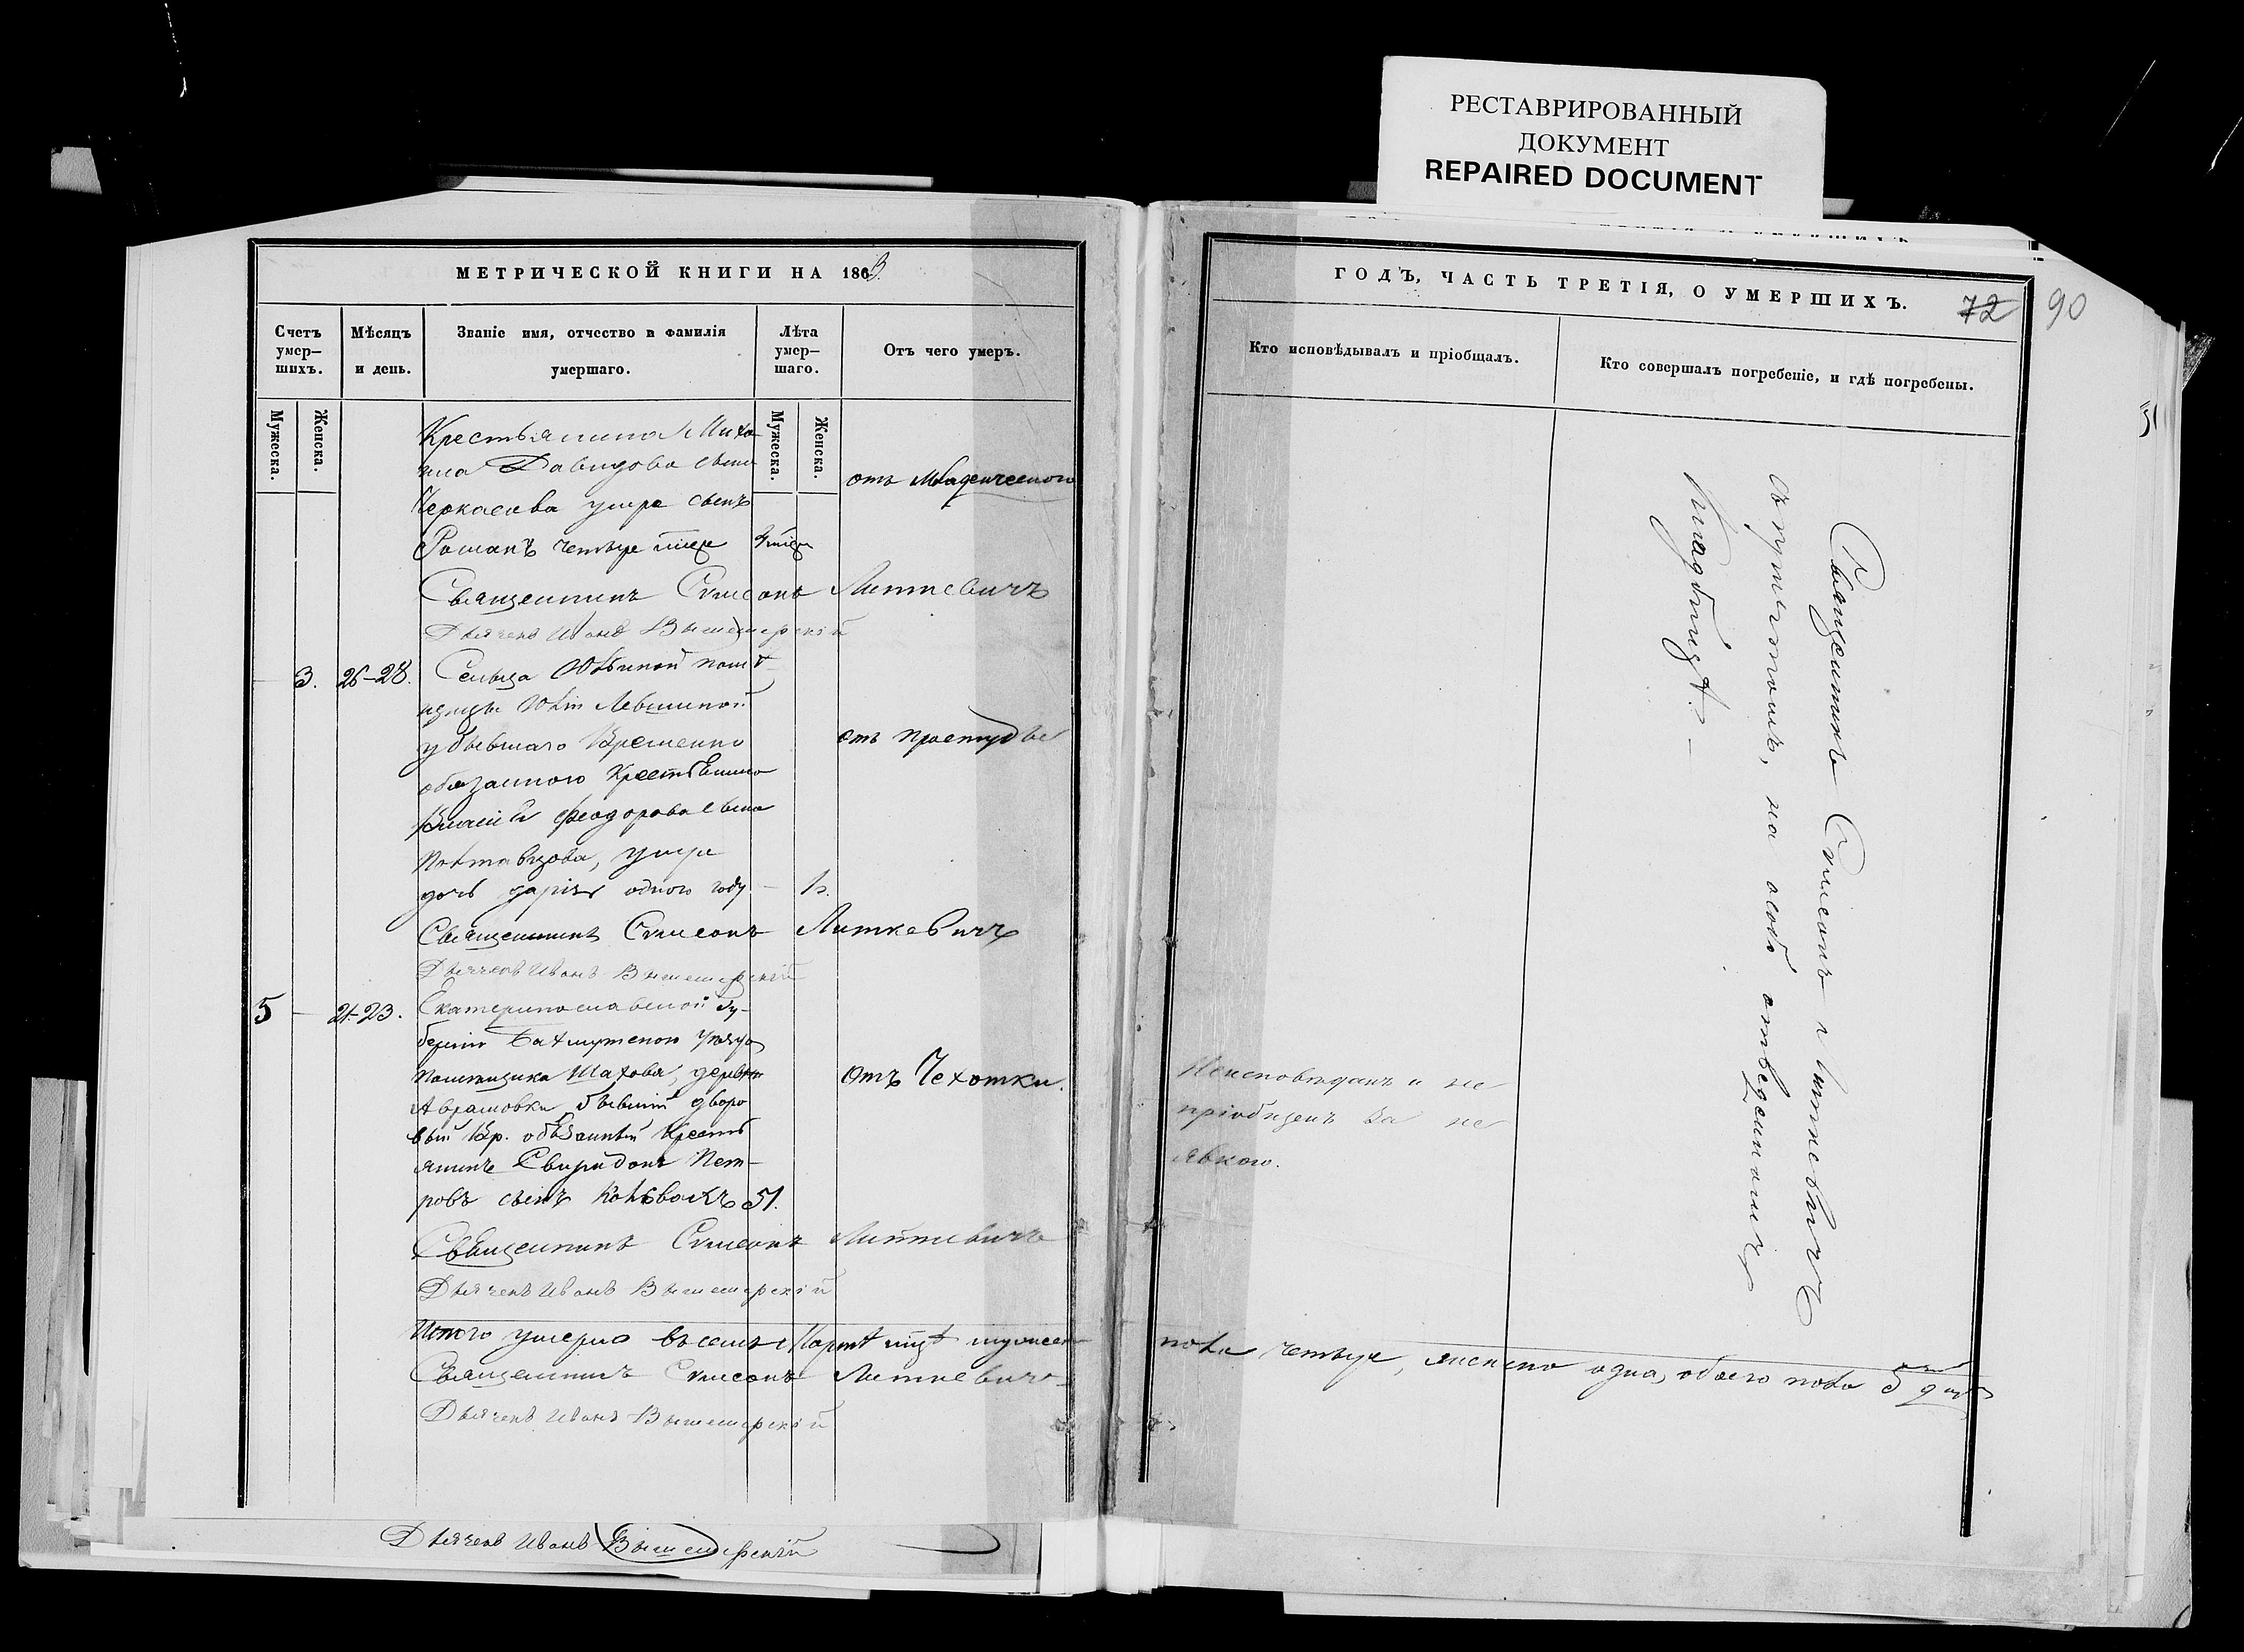 РЕСТАВРИРОВАННЫЙ
ДОКУМЕНТ
REPAIRED DOCUMENT
МЕТРИЧЕСКОЙ КНИГИ НА 1863.
Счетъ умер–шихъ.
Мѣсяцъ и день.
Званіе имя, отчество и фамилія умершаго.
Лѣта умер–шаго.
Отъ чего умеръ.
Мужеска.
Женска.
Мужеска.
Женска.
Крестьянина Миха
ила Давидова сына
Черкасова умре сынъ
Романъ четыре
отъ младенческого
Священникъ Симеонъ Литкевичъ
Дьячекъ Иванъ Вышемирскій
3. 26–28. Сельца Юльиной помѣ
щицы Юліи Левшиной
у бывшаго Временно
обязанного Крестьянина
Феодорова сына
Полтавцова, умре
дочь Дарія одного году – 1.
отъ простуды
Священникъ Симеонъ Литкевичъ
Дьячекъ Иванъ Вышемирскій
5 – 21–23. Екатеринославской Гу–
берніи Бахмутского Уѣзда
Помѣщика Шахова, деревни
Аврамовки бывшій дворо
вый Вр. обязанный Кресть
янинъ Свиридонъ Пет–
ровъ сынъ 51.
Отъ Чехотки.
Священникъ Симеонъ Литкевичъ
Дьячекъ Иванъ Вышемирскій
Итого умерло въ семъ Мартѣ мцѣ мужеска
Священникъ Симеонъ Литкевичъ
Дьячекъ Иванъ Вышемирскій
Дьячекъ Иванъ Вышемирскій
ГОДЪ, ЧАСТЬ ТРЕТІЯ, О УМЕРШИХЪ.
72 90
Кто исповѣдывалъ и пріобщалъ.
Кто совершалъ погребеніе, и гдѣ погребены.
Священникъ Симеонъ Литкевичъ
съ причтомъ, на особ отведенномъ
Кладбищѣ. –
Неисповѣданъ и не
пріобщенъ за не
явкою.
пола четыре, женска одна, обоего пола 5 душъ